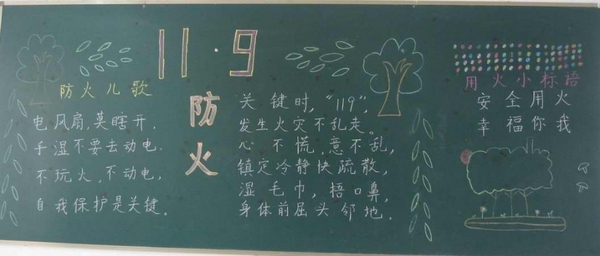 11·9
防火
防火儿歌
电风扇,莫瞎开.
手湿不要去动电.
不玩火、不动电,
自我保护是关键.
关键时,"119",
发生火灾不乱走。
心不慌,意不乱,
镇定冷静快疏散,
湿毛巾,捂口鼻,
身体前屈头邻地.
用火小标语
安全用火
幸福你我